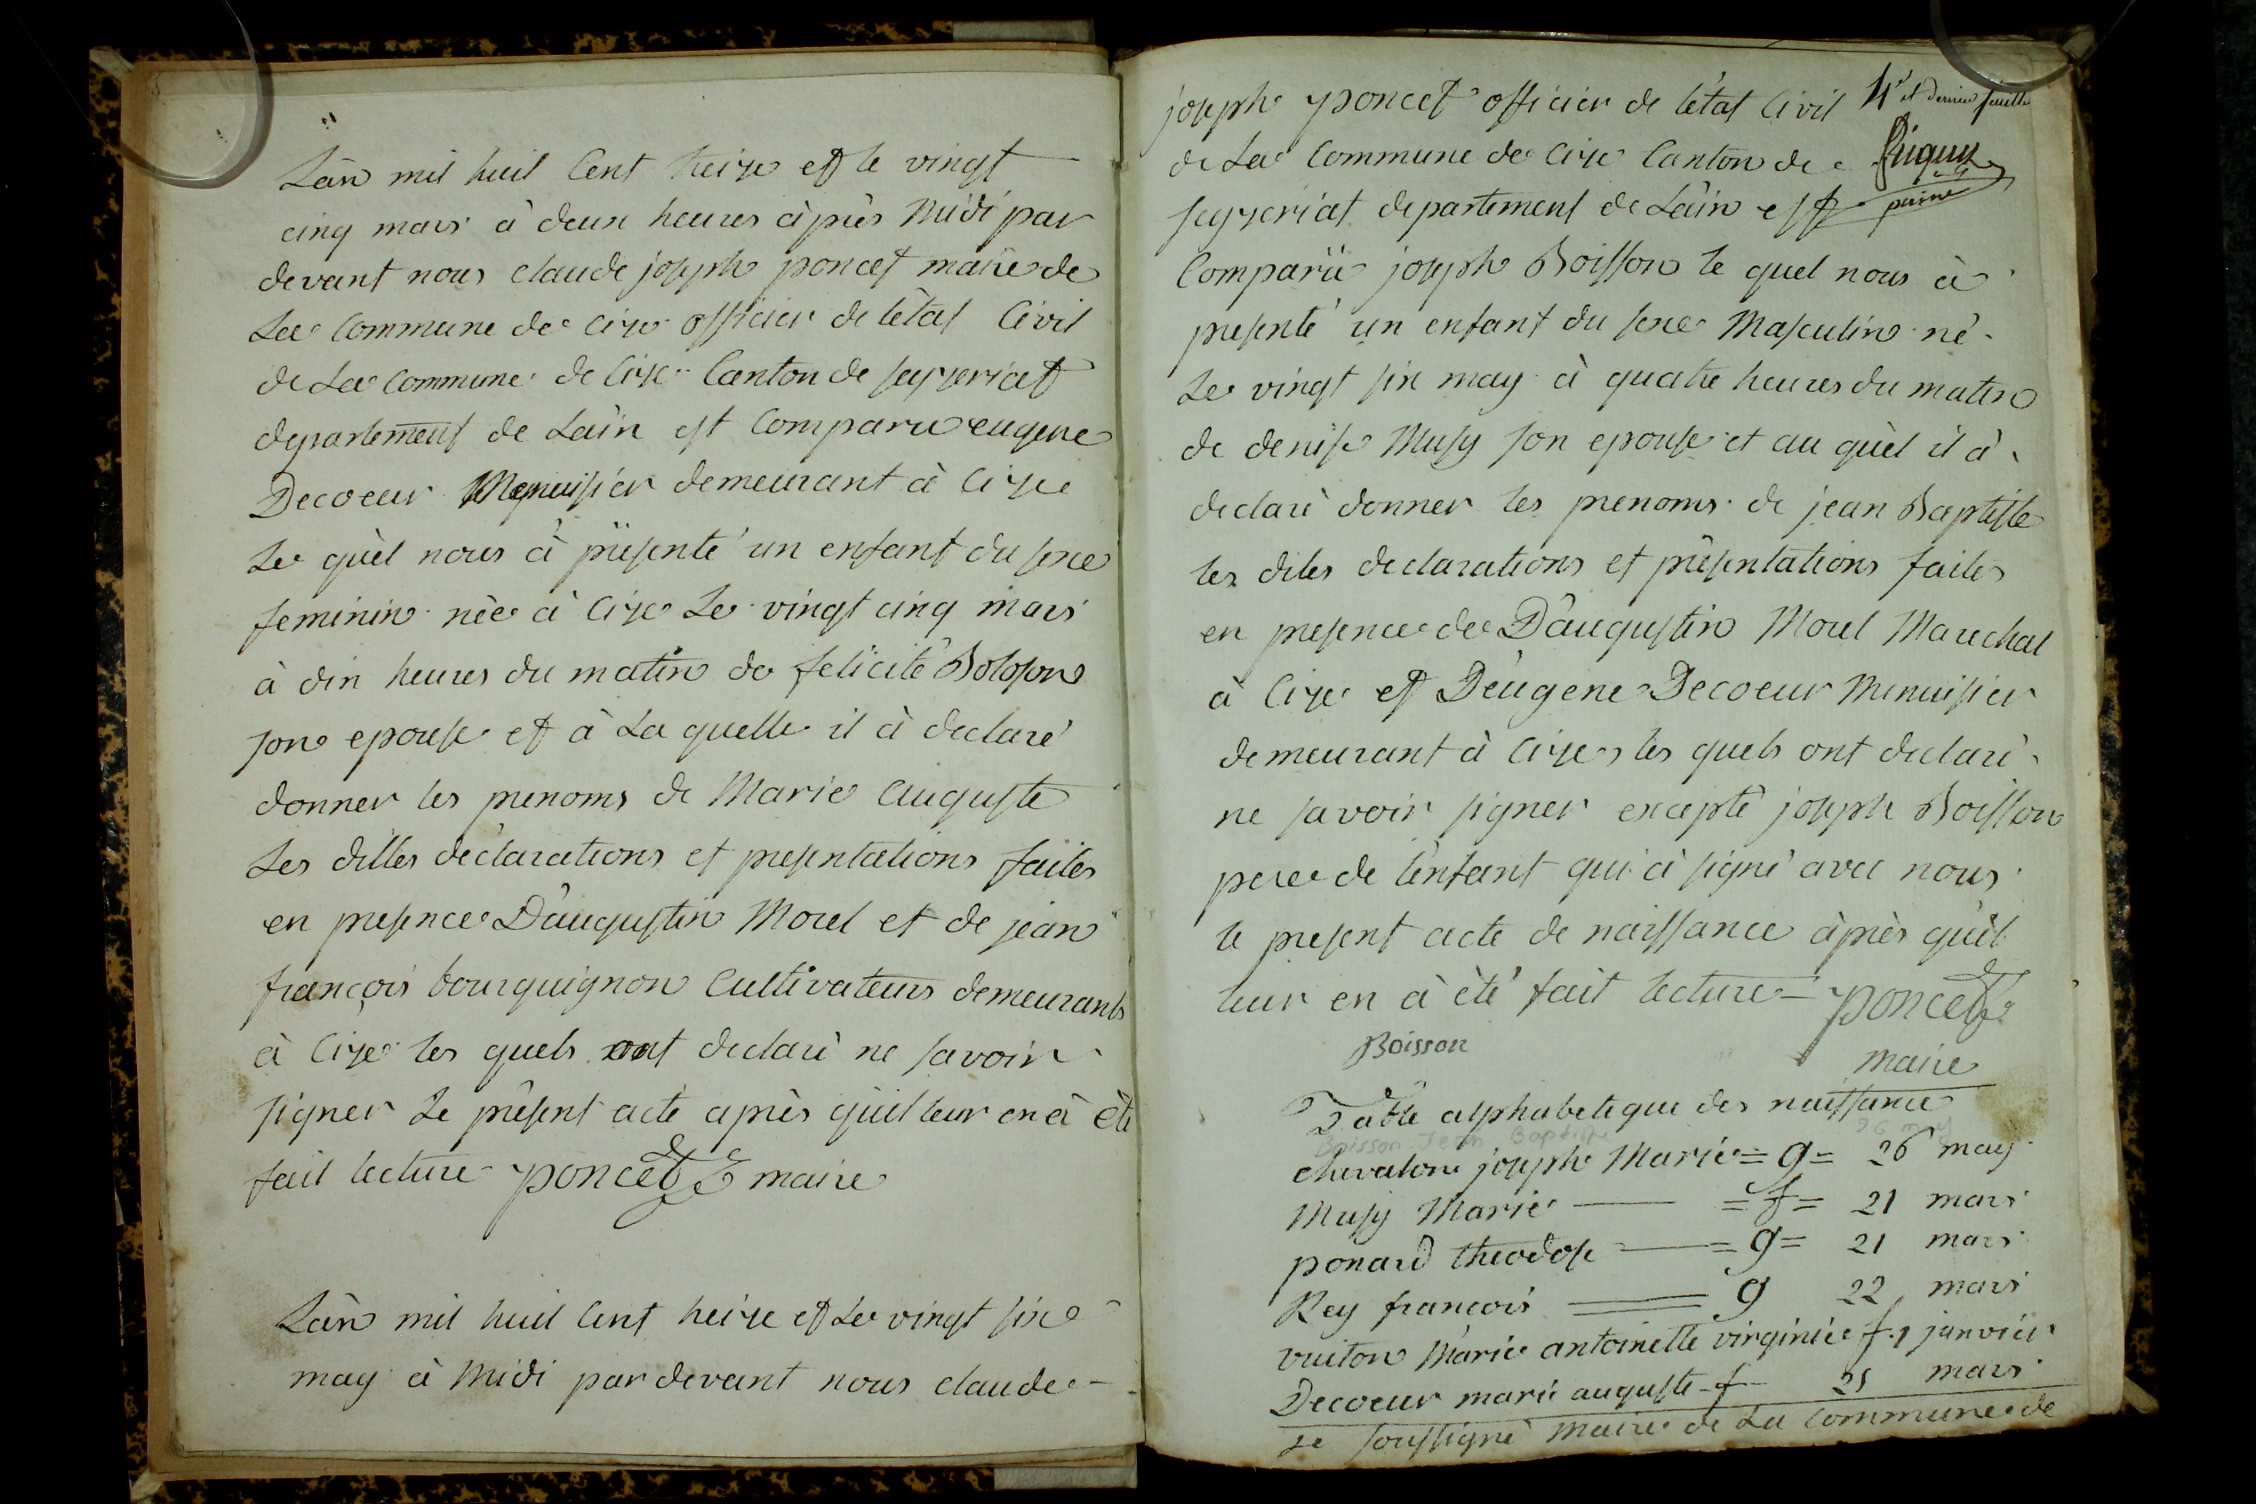 Làn mil huit Cent treize et le vingt
cinq mars à deux heures après Midi par
devant nous claude joseph poncet maire de
La Commune de Cize officier de lètat Civil
de La Commune de Cize Canton de seyzeriat
departement de Làin est Comparu eugene
Decoeur Menuisier demeurant à Cize
Le quèl nous à présenté un enfant du sexe
feminin née à Cize Le vingt cinq mars
à dix heures du matin de felicité Bolozon
son epouse et à La quelle il à declaré
donner les prenoms de Marie auguste
Les dittes déclarations et presentations faites
en presence D'augustin Morel et de jean
françois bourguignon Cultivateurs demeurants
à Cize les quels ont declaré ne savoir
signer Le présent acte après quil leur en à été
fait lecture poncet maire
Làn mil huit Cent treize et Le vingt six
may à Midi par devant nous claude
joseph poncet officier de létat Civil
4e et dernier feuillet
de La Commune de Cize Canton de
seyzeriat departement de Làin est
Comparü joseph Boisson le quel nous à
presenté un enfant du sexe Masculin né
Le vingt six may à quatre heures du matin
de denise Musy son epouse et au quèl il à
declaré donner les prenoms de jean Baptiste
les dites declarations et présentations faites
en presence de D'augustin Morel Marechal
à Cize et D'eugene Decoeur Menuisier
demeurant à Cize les quels ont declaré
ne savoir signer excepté joseph Boisson
pere de lenfant qui à signé avec nous
le present acte de naissance àprès quil
leur en à été fait lecture poncet
Boisson
maire
Table alphabetique des naissance
Boisson Jean Baptiste 26 may
chevalon joseph Marie = g = 26 may
Musy Marie = f = 21 mars
ponard theodose = g = 21 mars
Rey francois g 22 mars
vuiton Marie antoinette virginie f 1 janvier
Decoeur marie auguste f 25 mars
Le soussigné Maire de La Commune de